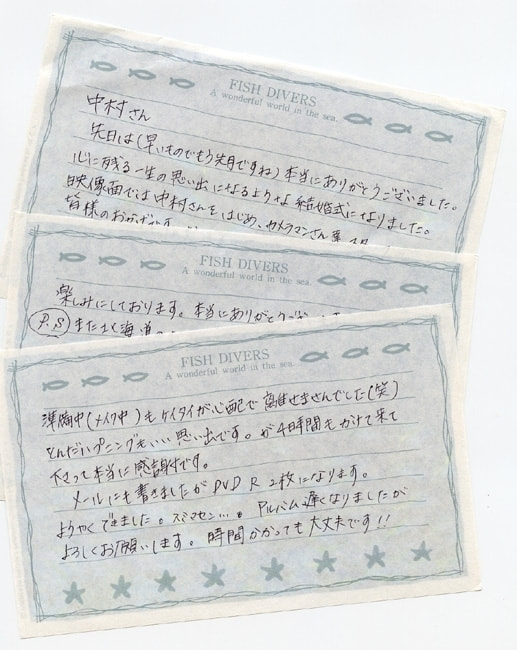 FISH DIVERS
A wonderful world in the sea.
中村さん
先日は(早いものでもう先月ですね)本当にありがとうございました。
心に残る一生の思い出になるような結婚式になりました。
映像面では中村さんをはじめ、カメラマンさん
皆様のおかげです。
FISH DIVERS
A wonderful world in the sea.
楽しみにしております。本当にありがとうござい
P.S また
FISH DIVERS
A wonderful world in the sea.
準備中(メイク中)もケイタイが心配で離せませんでした(笑)
とんだハプニングもいい思い出です。が4時間もかけて来て
下さって本当に感謝です。
メールにも書きましたがDVD R 2枚になります。
ようやくできました。スミマセン…。アルバム遅くなりましたが
よろしくお願いします。時間かかっても大丈夫です!!